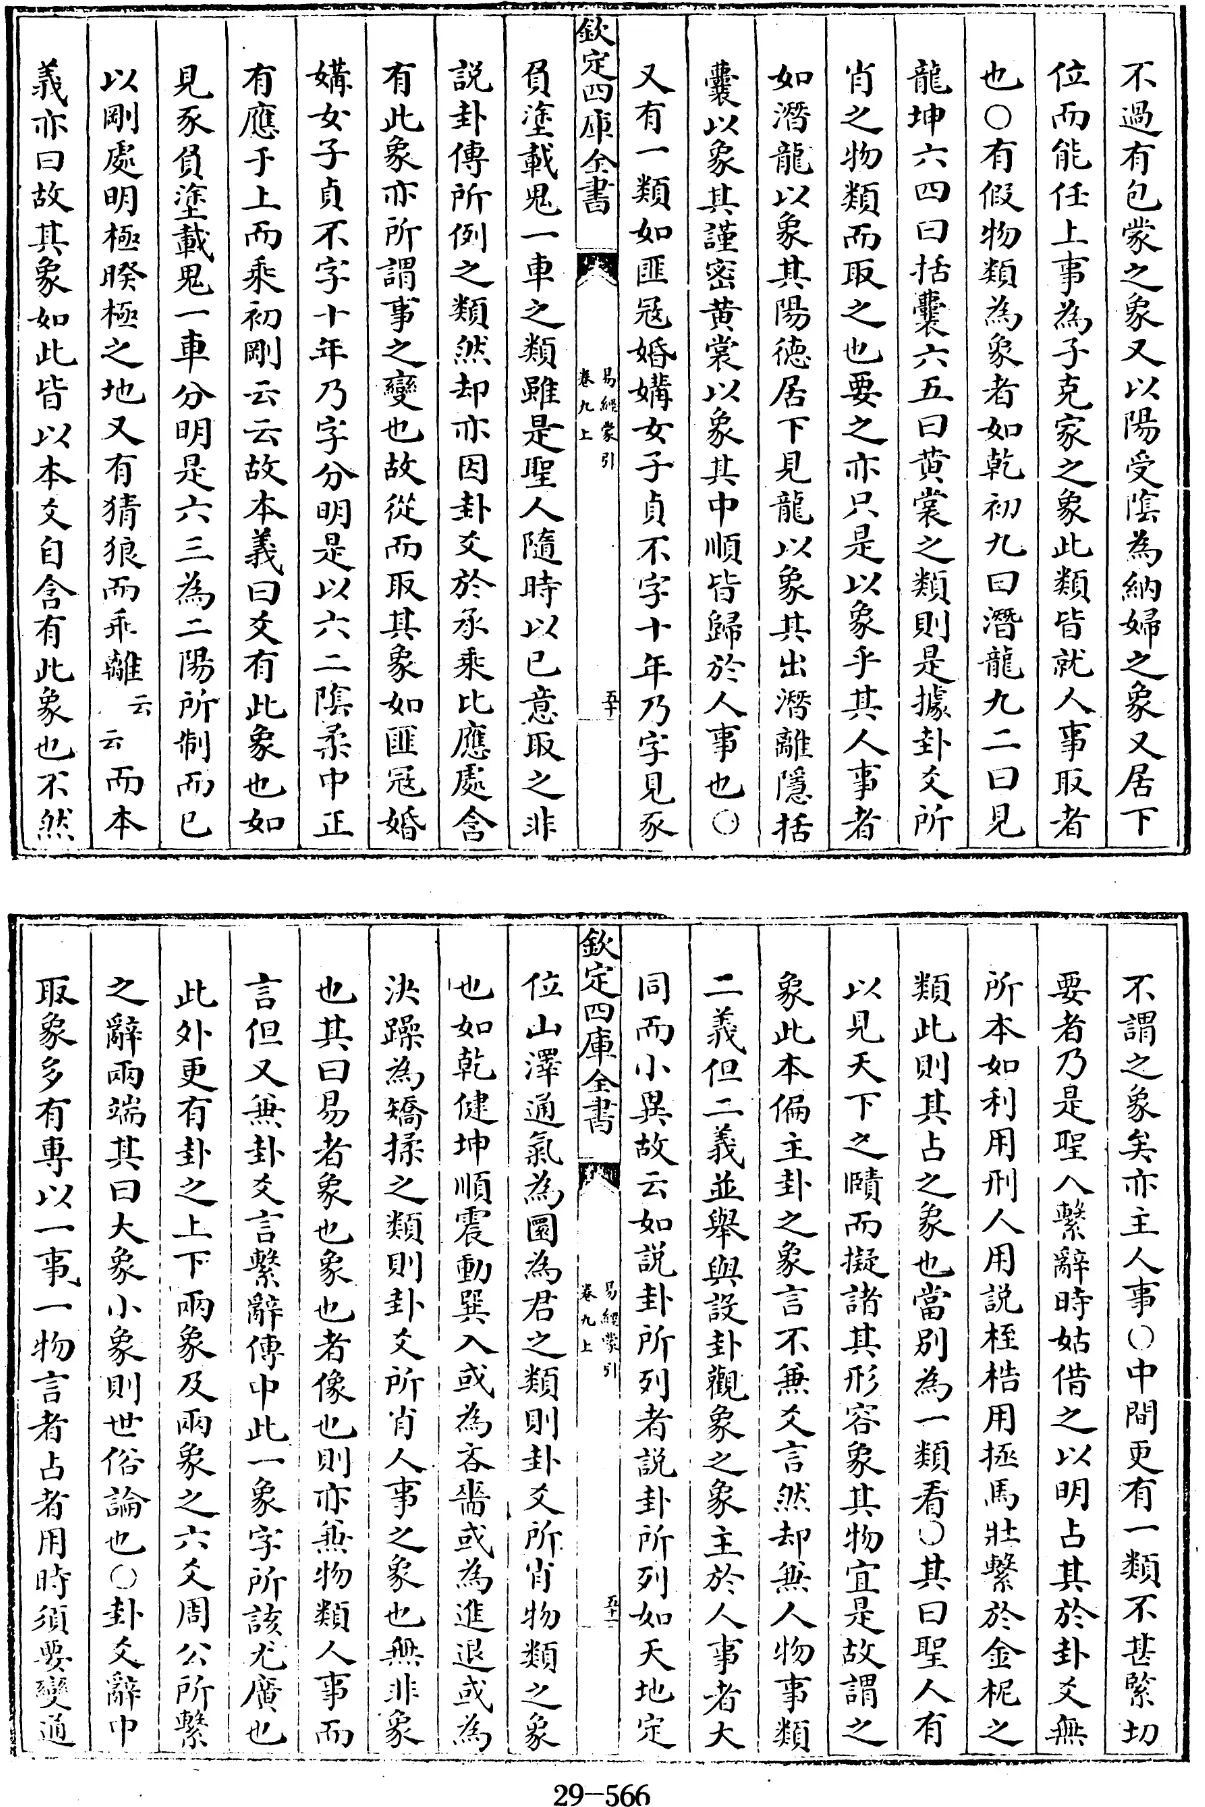 不過有包蒙之象又以陽受陰為納婦之象又居下
位而能任上事為子克家之象此類皆就人事取者
也○有假物類為象者如乾初九曰潛龍九二曰見
龍坤六四曰括囊六五曰黄裳之類則是據卦爻所
肖之物類而取之也要之亦只是以象乎其人事者
如潛龍以象其陽德居下見龍以象其出潛離隱括
囊以象其謹密黄裳以象其中順皆歸於人事也○
又有一類如匪冦婚媾女子貞不字十年乃字見豕
欽定四庫全書
易經蒙引
卷九上
五十
負塗載鬼一車之類雖是聖人隨時以已意取之非
説卦傳所例之類然却亦因卦爻於承乘比應處含
有此象亦所謂事之變也故從而取其象如匪冦婚
媾女子貞不字十年乃字分明是以六二陰柔中正
有應于上而乘初剛云云故本義曰爻有此象也如
見豕負塗載鬼一車分明是六三為二陽所制而已
以剛處明極睽極之地又有猜狠而乖離云云而本
義亦曰故其象如此皆以本爻自含有此象也不然
不謂之象矣亦主人事○中間更有一類不甚緊切
要者乃是聖人繫辭時姑借之以明占其於卦爻無
所本如利用刑人用説桎梏用拯馬壯繫於金柅之
類此則其占之象也當别為一類看○其曰聖人有
以見天下之賾而擬諸其形容象其物宜是故謂之
象此本偏主卦之象言不兼爻言然却無人物事類
二義但二義並舉與設卦觀象之象主於人事者大
同而小異故云如説卦所列者説卦所列如天地定
欽定四庫全書
易經蒙引
卷九上
五十一
位山澤通氣為圜為君之類則卦爻所肖物類之象
也如乾健坤順震動巽入或為吝嗇或為進退或為
決躁為矯揉之類則卦爻所肖人事之象也無非象
也其曰易者象也象也者像也則亦兼物類人事而
言但又兼卦爻言繫辭傳中此一象字所該尤廣也
此外更有卦之上下兩象及兩象之六爻周公所繫
之辭兩端其曰大象小象則世俗論也○卦爻辭中
取象多有専以一事一物言者占者用時須要變通
29-566